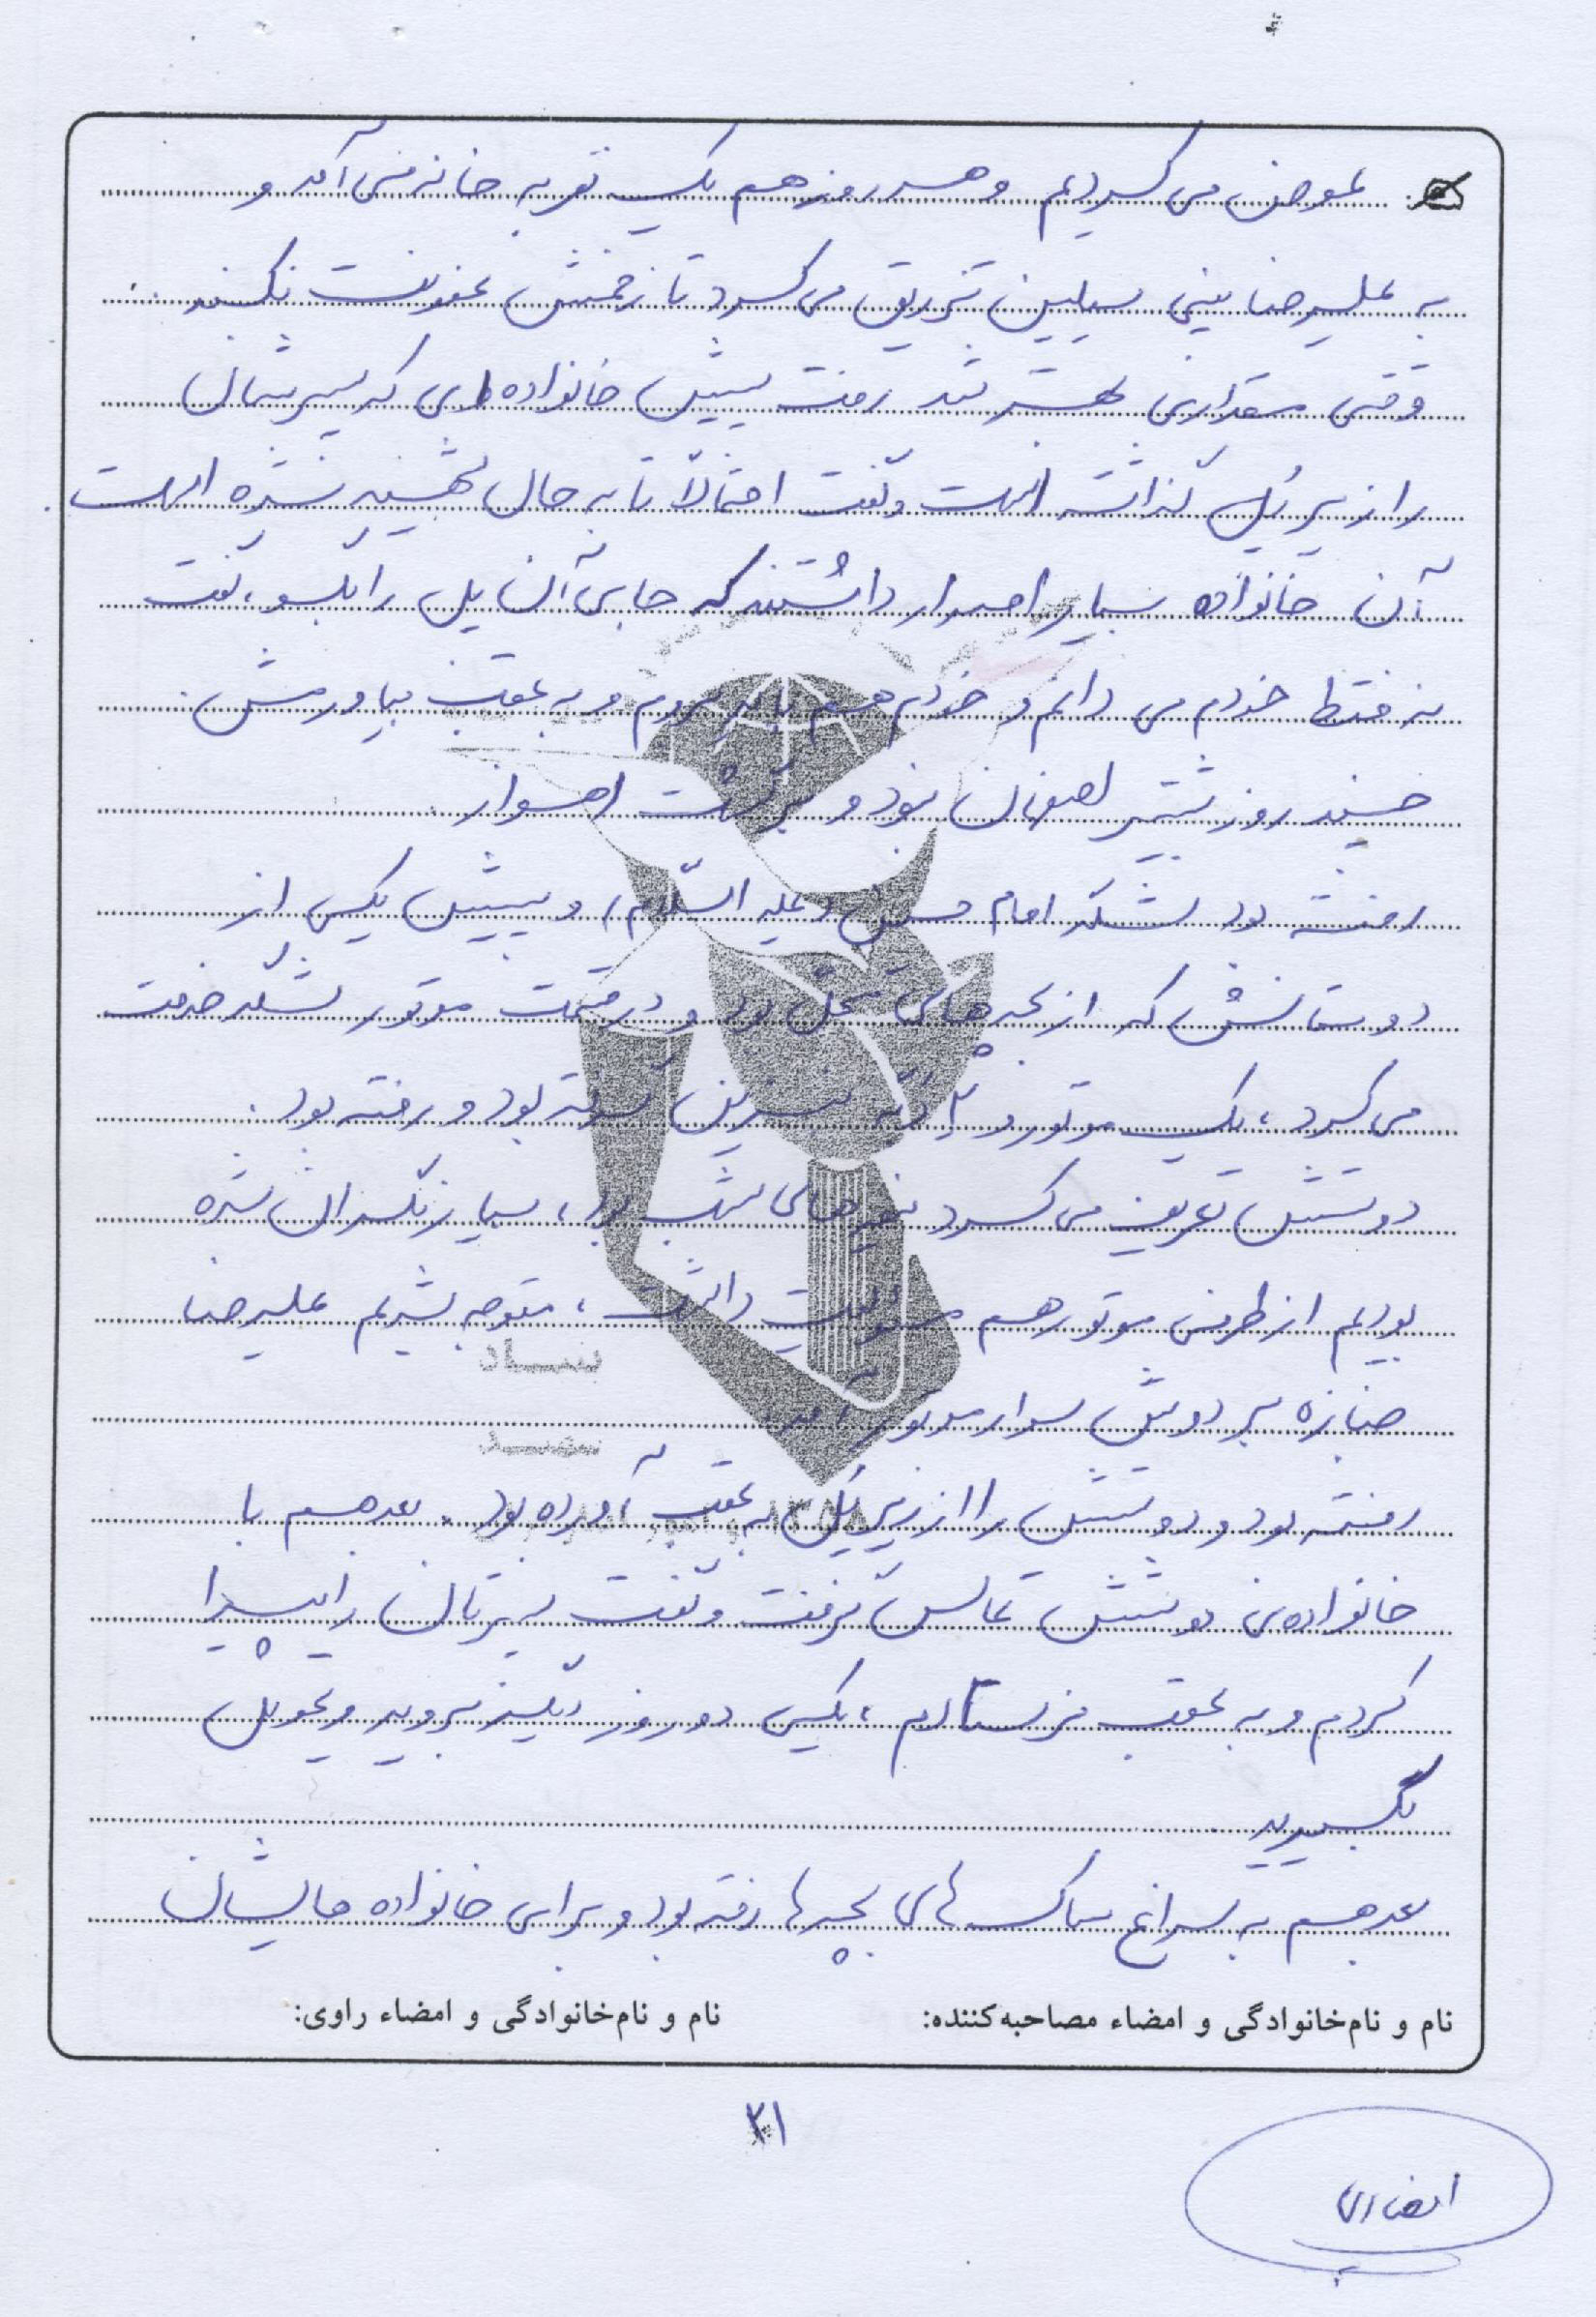 عوض می‌کردیم و هر روز هم یک نفر به خانه می‌آمد و
به علیرضا پنی سیلین تزریق می‌کرد تا زخمش عفونت نکند.
وقتی مقداری بهتر شد رفت پیش خانواده‌ای که پسرشان
را زیر پل گذاشته است و گفت احتمالاً تا به حال تجهیز نشده است.
آن خانواده بسیار اصرار داشتند که جای آن پل را بگو، گفت
نه فقط خودم می دانم و خودم هم باید بروم و به عقب بیاورمش.
چند روز بیشتر اصفهان نبود و برگشت اهواز
رفته بود لشکر امام حسین (علیه السّلام) و پیش یکی از
دوستانش که از بچه‌های محل بود و در قسمت موتور لشکر خدمت
می‌کرد، یک موتور و ۲ بنزین گرفته بود و رفته بود.
دوستش تعریف می‌کرد نیمه‌های شب بود، بسیار نگران شده
بودیم از طرفی موتور هم مسئولیت داشت، متوجه شدیم علیرضا
جنازه بر دوش سوار موتور آمد.
رفته بود و دوستش را از زیر پل به عقب آورده بود. بعد هم با
خانواده‌ی دوستش تماس گرفت و گفت پسرتان را پیدا
کردم و به عقب فرستادم، یکی دو روز دیگر بروید و تحویل
بگیرید
بعد هم به سراغ ساک های بچه‌ها رفته بود و برای خانواده هایشان
نام و نام‌خانوادگی و امضاء مصاحبه‌کننده: نام و نام‌خانوادگی و امضاء راوی:
۲۱
انصاری